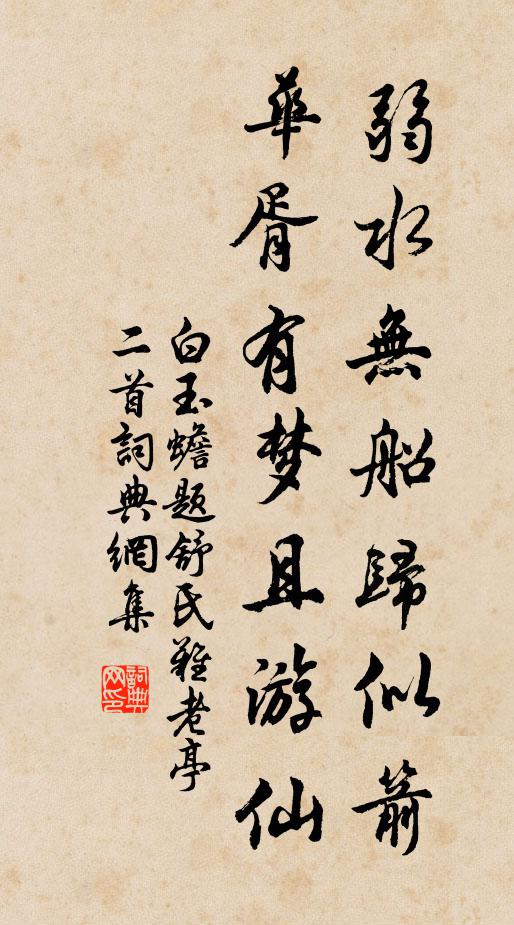 弱水無船歸似箭
華胥有梦且游仙
白玉蟾题舒氏難老亭
二首詞典網集
詞典网印